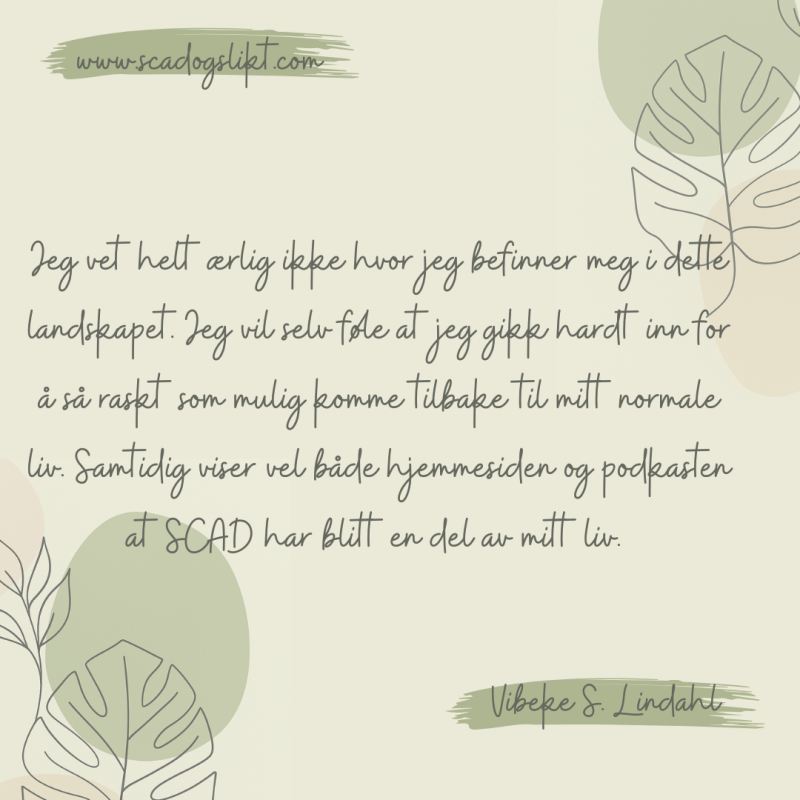 www.scadogslikt.com
Jeg vet helt ærlig ikke hvor jeg befinner meg i dette
landskapet. Jeg vil selv føle at jeg gikk hardt inn for
å så raskt som mulig komme tilbake til mitt normale
liv. Samtidig viser vel både hjemmesiden og podkasten
at SCAD har blitt en del av mitt liv.
Vibeke S. Lindahl